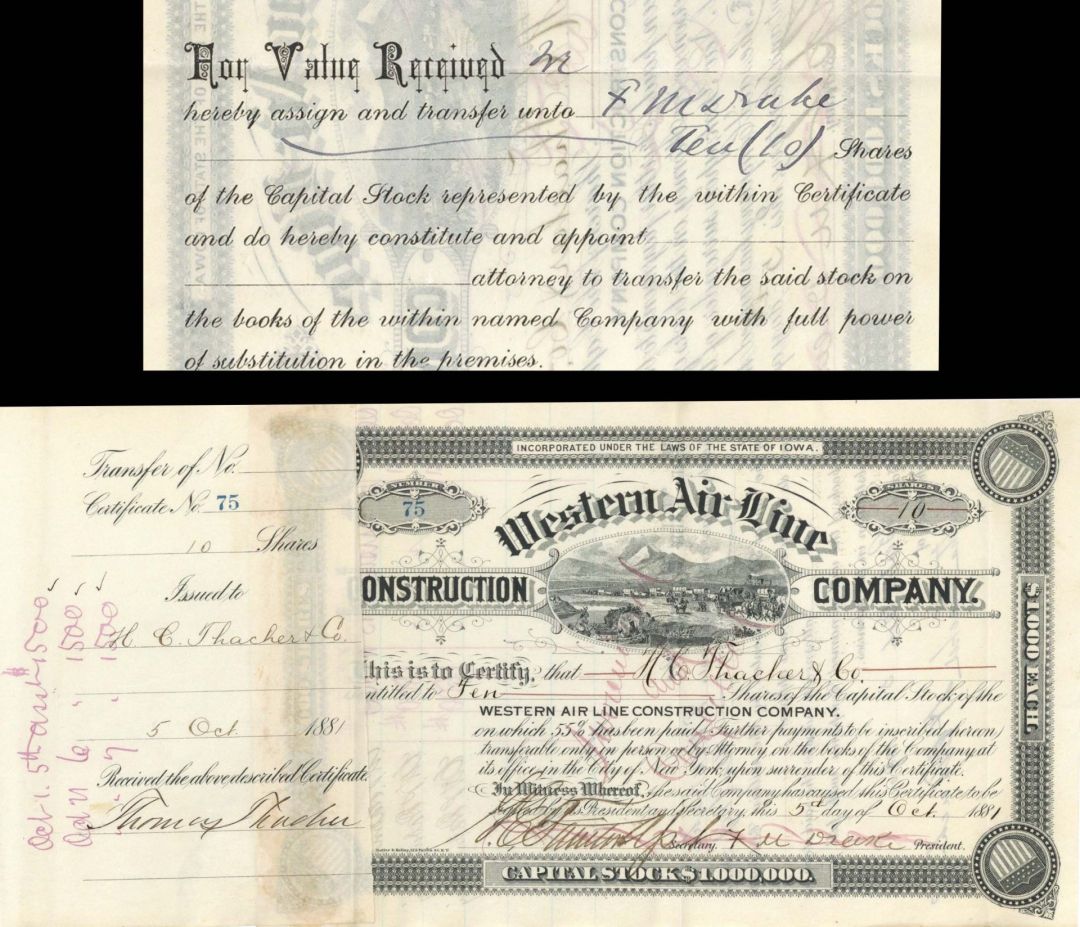 For Value Received we
hereby assign and transfer unto F M Drake
Ten (10) Shares
of the Capital Stock represented by the within Certificate
and do hereby constitute and appoint
attorney to transfer the said stock on
the books of the within named Company with full power
of substitution in the premises.
Transfer of No.
Certificate No. 75
10 Shares
Issued to
H. C. Thacher & Co.
5 Oct. 1881
Received the above described Certificate
Thomas Thacher
Oct 1. 5th asst $1500
" 6 " 1500
" 7 " 1500
INCORPORATED UNDER THE LAWS OF THE STATE OF IOWA.
NUMBER
75
SHARES
10
Western Air Line
ONSTRUCTION COMPANY.
This is to Certify, that H. C. Thacher & Co.
entitled to Ten Shares of the Capital Stock of the
WESTERN AIR LINE CONSTRUCTION COMPANY.
on which 55% has been paid (Further payments to be inscribed hereon)
transferable only in person or by Attorney on the books of the Company at
its office in the City of New York, upon surrender of this Certificate.
In Witness Whereof, the said Company has caused this Certificate to be
signed by its President and Secretary, this 5th day of Oct. 1881
Secretary. F M Drake President.
CAPITAL STOCK $1,000,000.
$1,000 EACH.